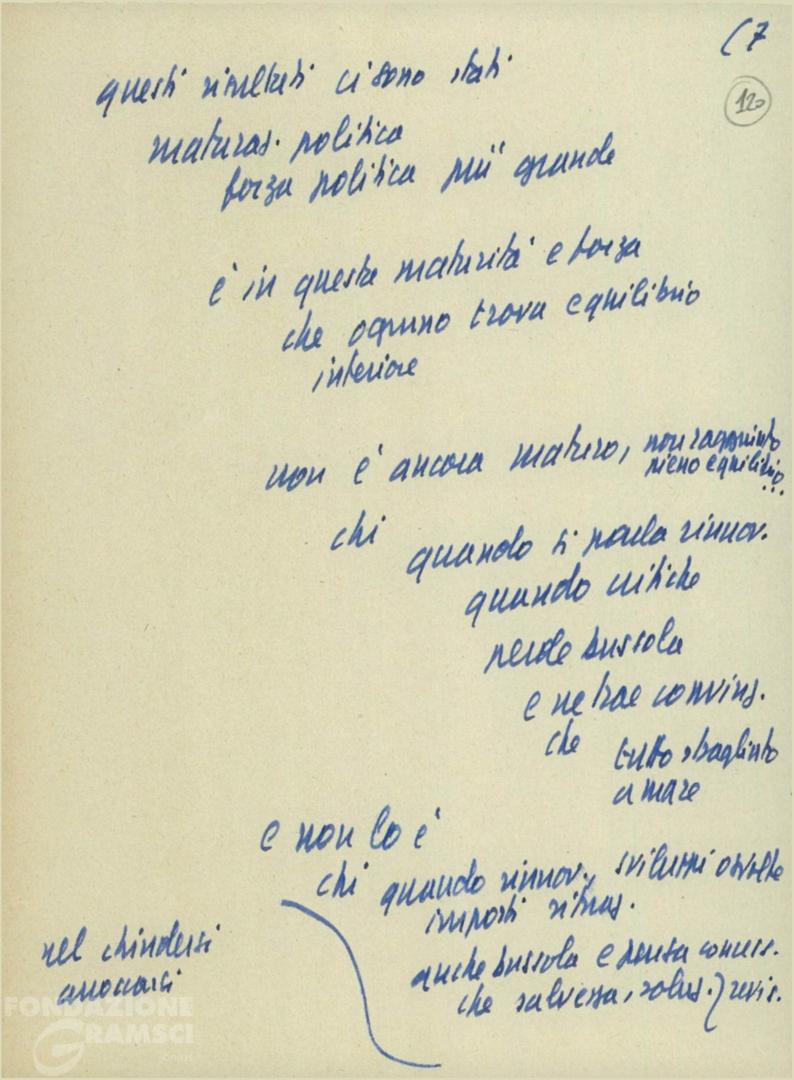 (7
120
questi risultati ci sono stati
maturaz. politica
forza politica più grande
è in questa maturità e forza
che ognuno trova equilibrio
interiore
non è ancora maturo, non raggiunto
pieno equilibrio
...
chi
quando si parla rinnov.
quando critiche
perde bussola
e ne trae convinz.
che tutto sbagliato
a mare
e non lo è
chi quando rinnov., sviluppi o svolte
imposti
anche bussola e pensa
che salvezza, soluz. revis.
nel chiudersi
FONDAZIONE
GRAMSCI
onlus